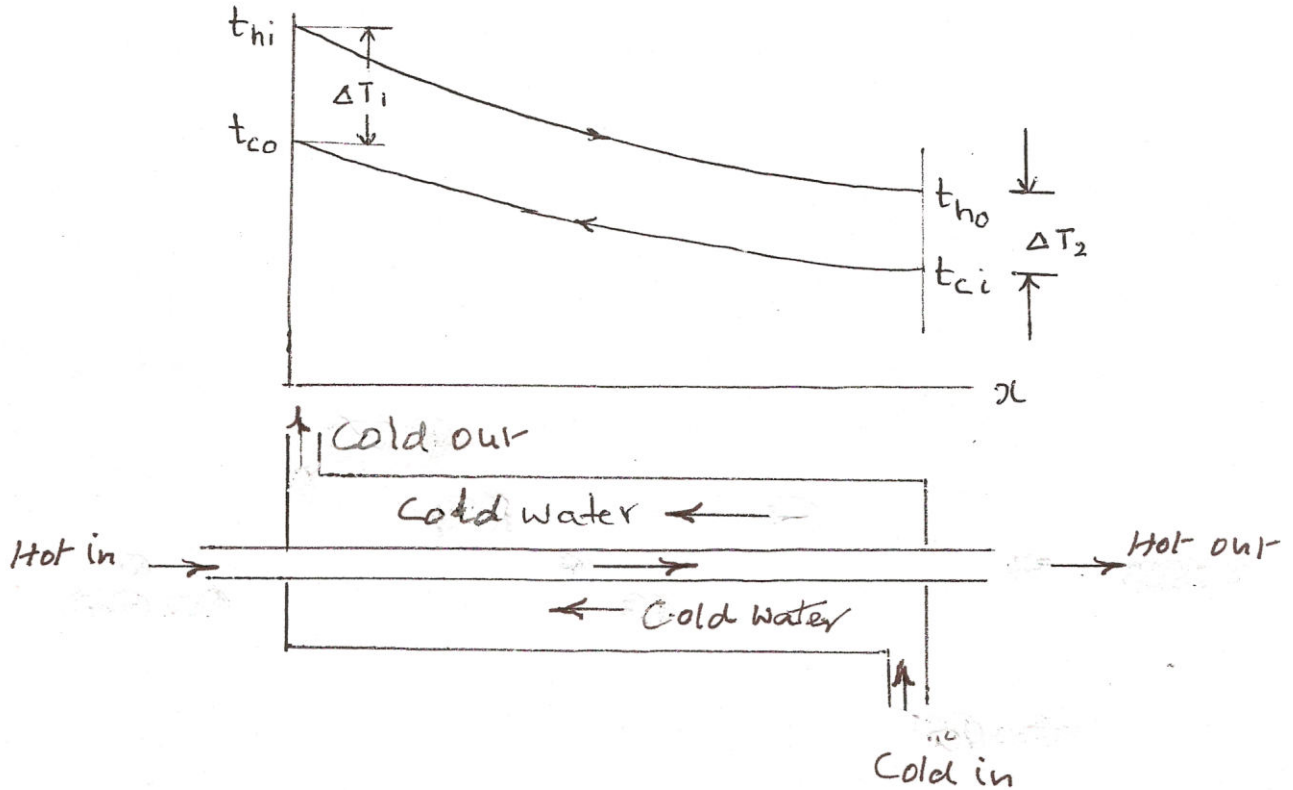 t_hi
ΔT₁
t_co
t_ho
ΔT₂
t_ci
x
Cold out
Cold water
Hot in
Hot out
Cold water
Cold in